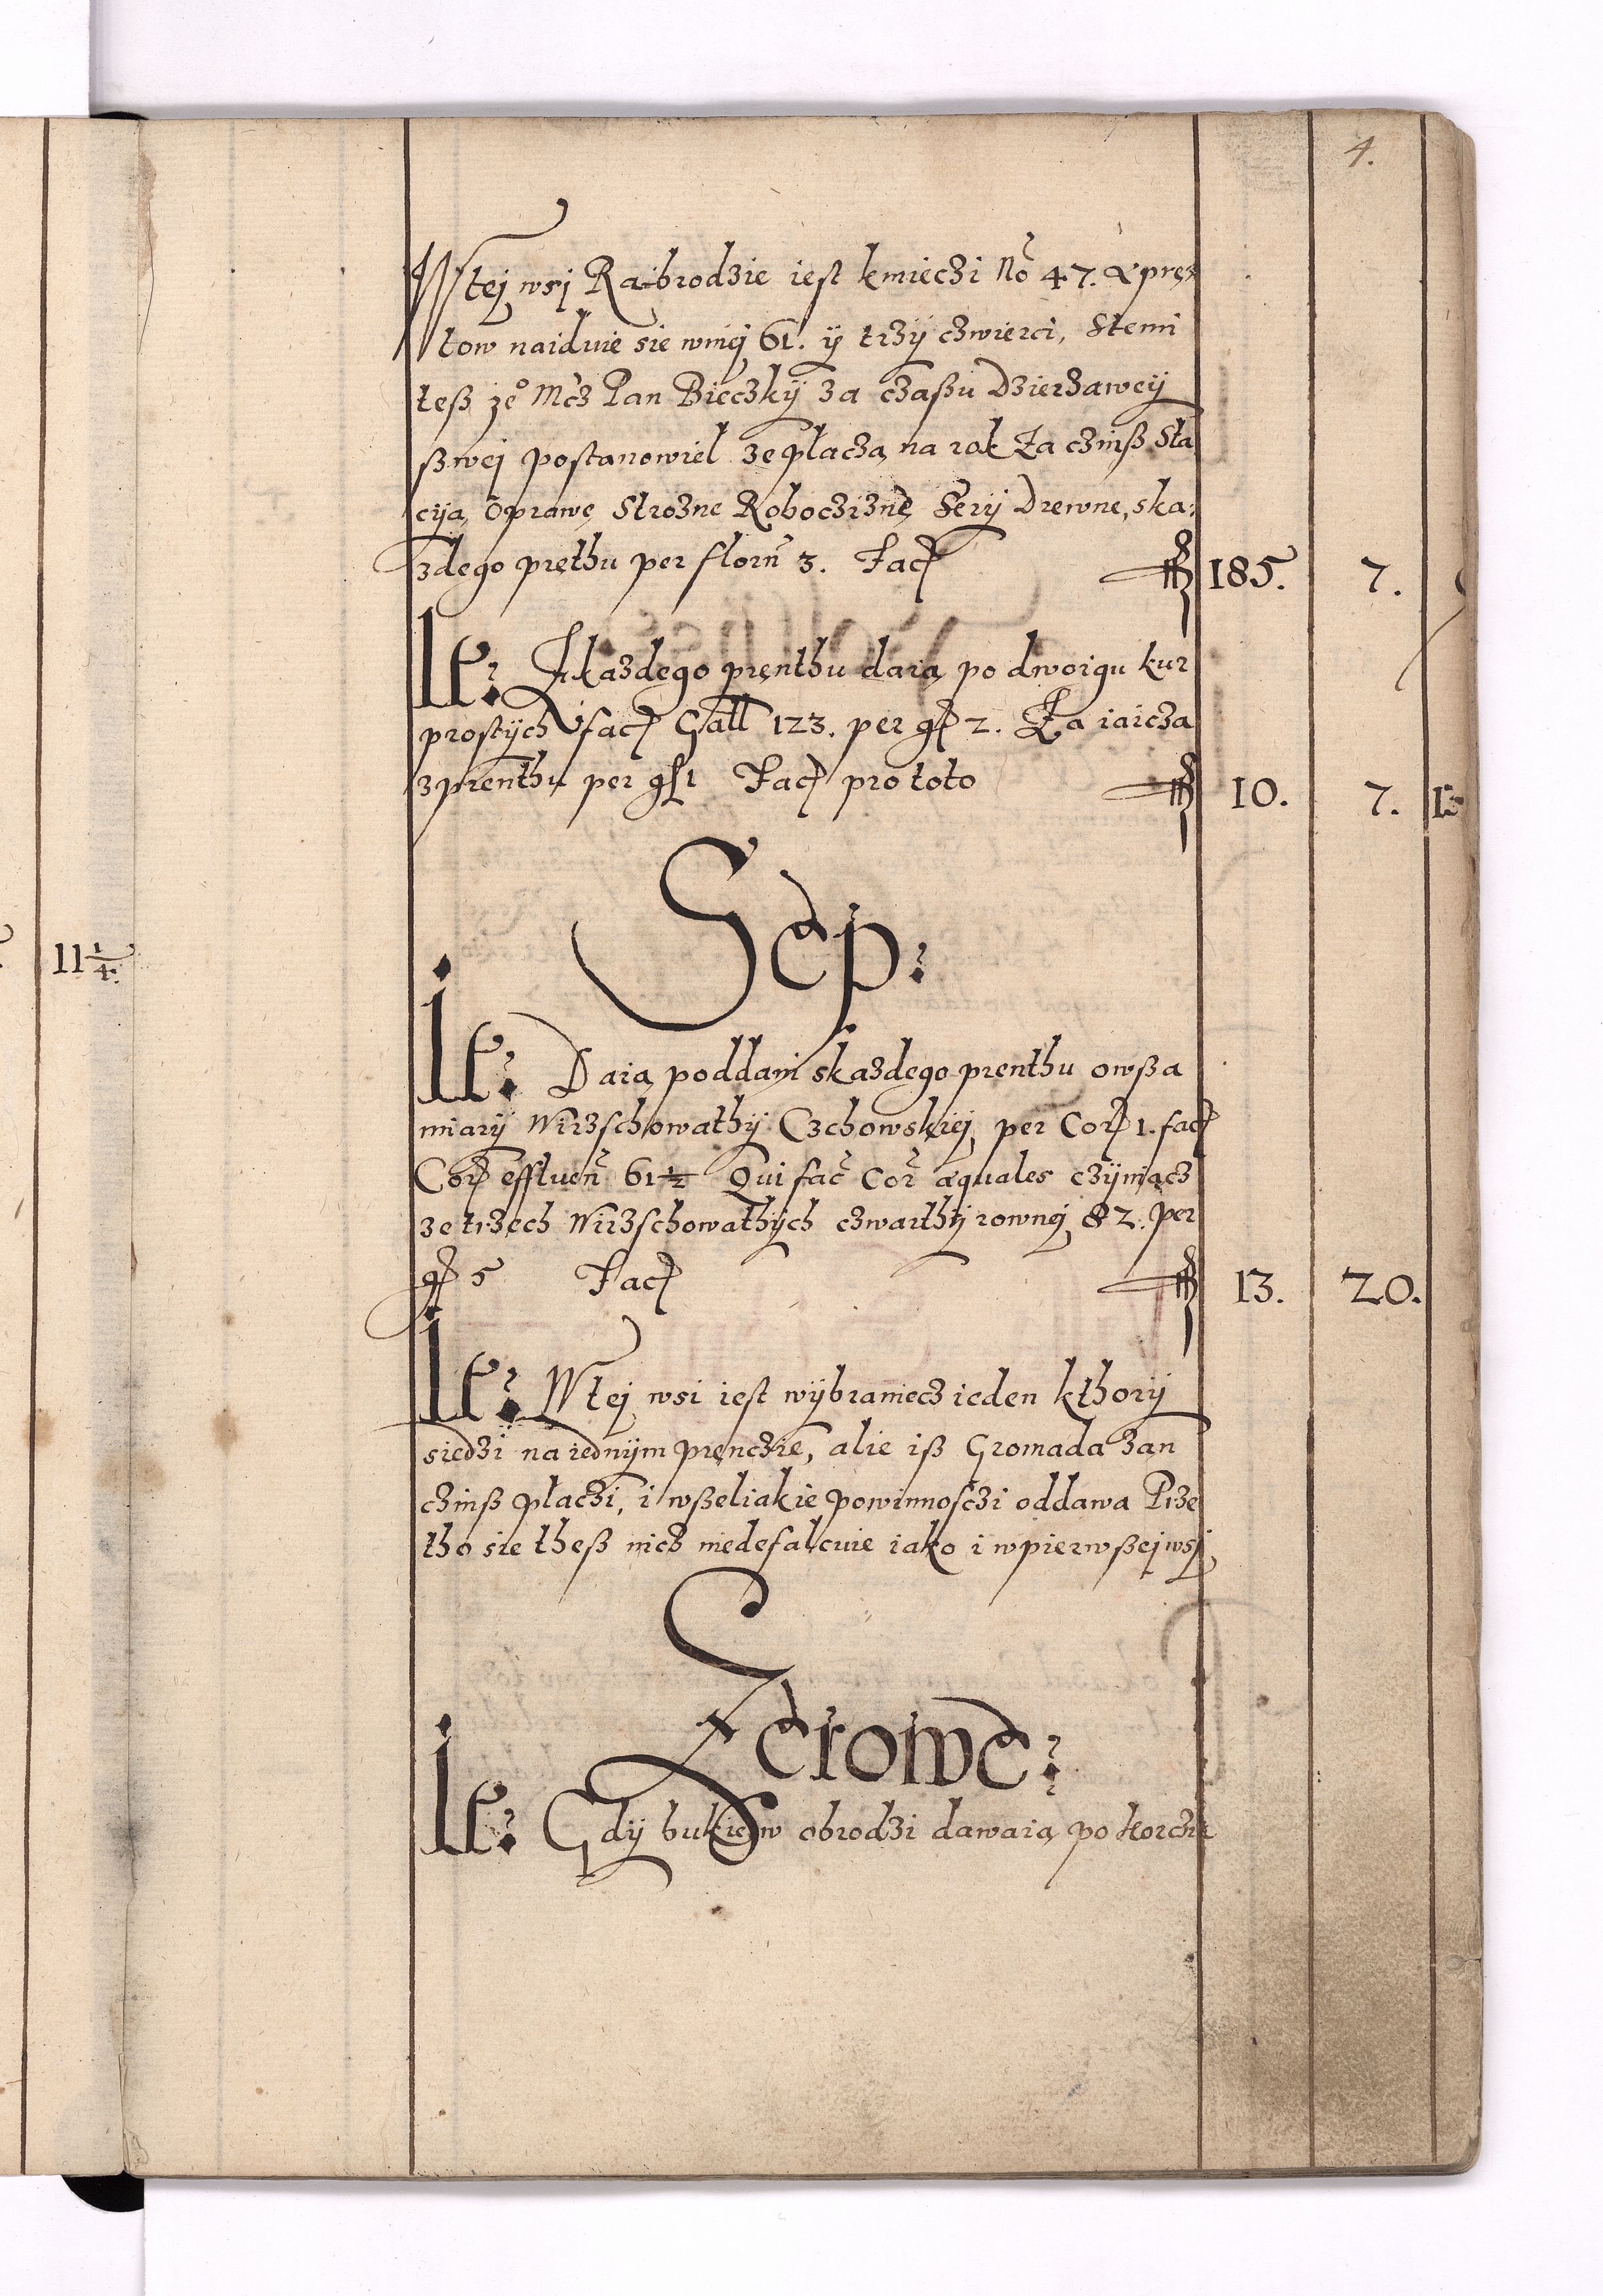 4.
Wtej wsj Raibrodzie iest kmieczi No 47. A pręn
tow naiduie sie wniej 61. ÿ trzÿ czwierci, Stemi
teß że Mcz Pan Bieczkÿ za czaßu Dzierzawcÿ
ßwej postanowiel ze płacza na rok Za czinß Sta
cÿa, Oprawę Strożne Roboczizne Serÿ Drewne, ska:
zdego pręthu per florn 3. Facit 185. 7.
It: Zkazdego pręnthu daia po dwoigu kur
prostÿch facit Gall 123. per gr 2. Za iaicza
z prenthu per gr 1 Facit pro toto 10. 7.
11 1/4.
Sep:
It: Daia poddani skazdego prenthu owßa
miarÿ Wirzschowathÿ Czchowskiej per Cor 1. facit
Cor effluen 61 1/2 Qui fac Cor æquales czÿniącz
ze trzech Wirzschowathÿch czwarthÿ rownej 82. per
gr 5 Facit 13. 20.
It: Wtej wsi iest wÿbraniecz ieden kthorÿ
siedzi na iednÿm pręnczie, alie iß Gromada zan
czinß płaczi, i wßeliakie powinnosczi oddawa Prze
tho sie theß nicz niedefalcuie iako i w pierwßej wsj
Zerowe:
It: Gdÿ bukiew obrodzi dawaia po korczu